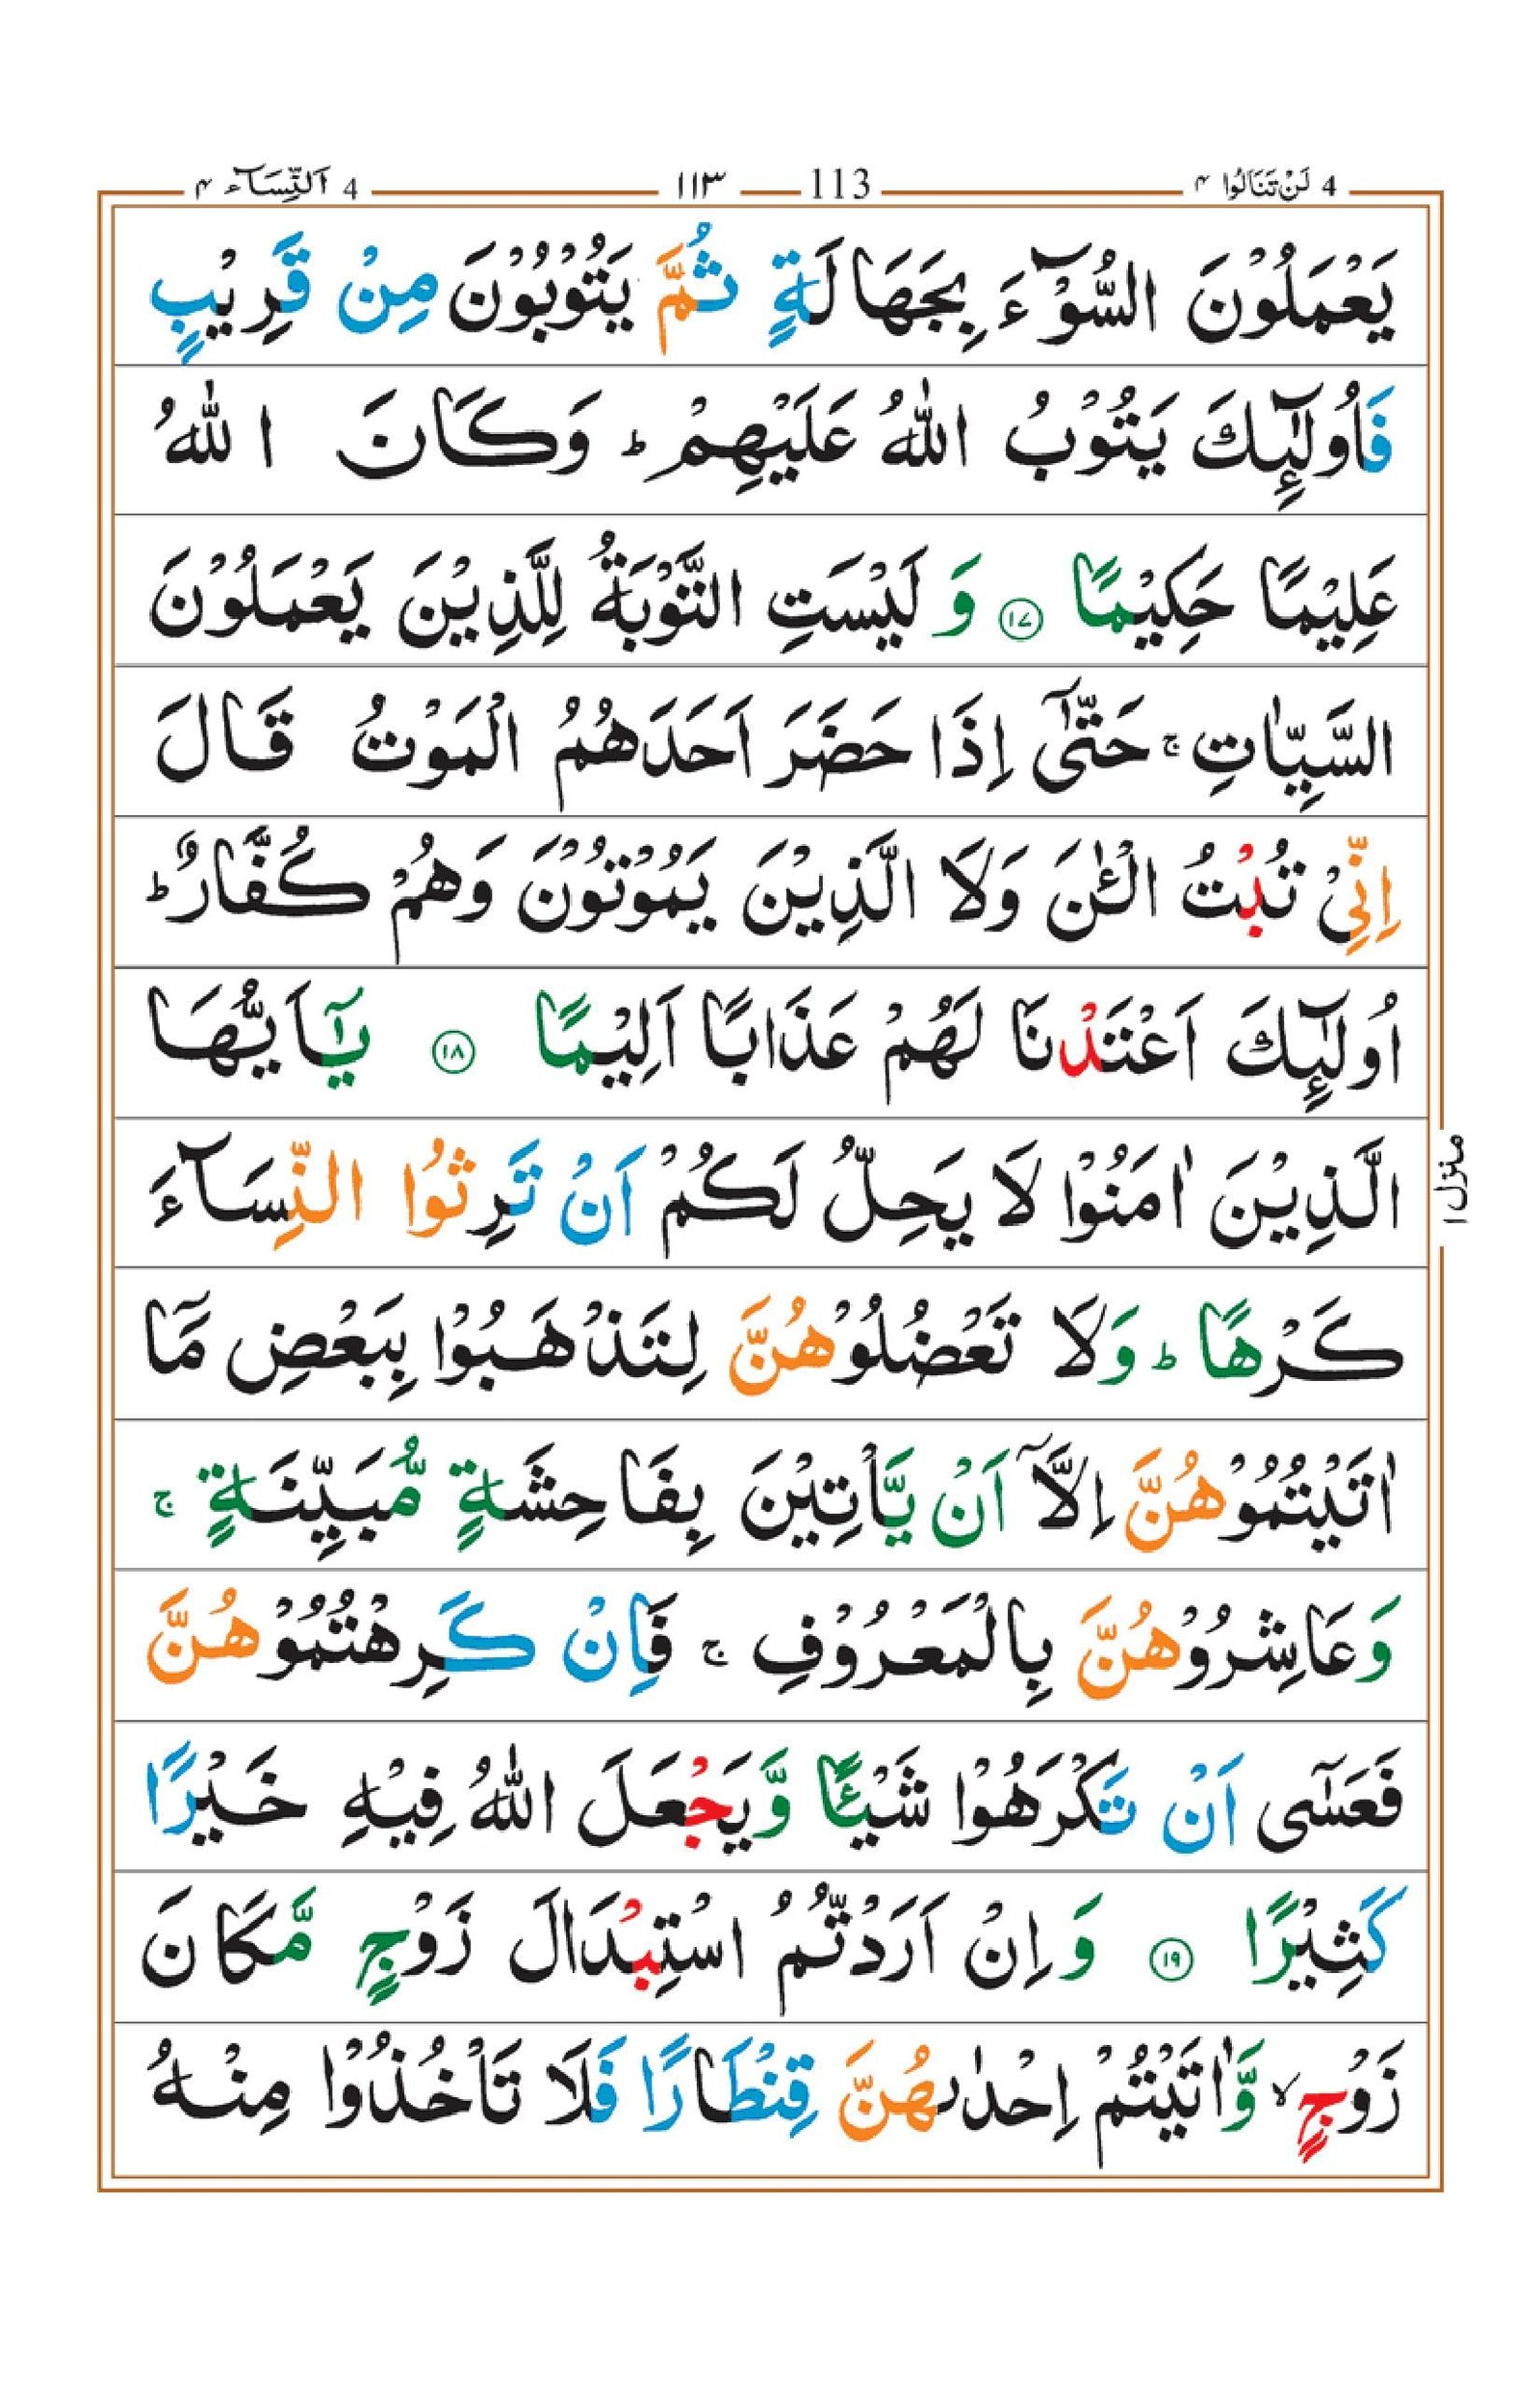 4 لَنْ تَنَالُوا ۴ 113 ۱۱۳ 4 اَلنِّسَآء ۴
يَعْمَلُوْنَ السُّوْٓءَ بِجَهَالَةٍ ثُمَّ يَتُوْبُوْنَ مِنْ قَرِيْبٍ
فَاُولٰٓئِكَ يَتُوْبُ اللّٰهُ عَلَيْهِمْ ؕ وَكَانَ اللّٰهُ
عَلِيْمًا حَكِيْمًا ﴿۱۷﴾ وَ لَيْسَتِ التَّوْبَةُ لِلَّذِيْنَ يَعْمَلُوْنَ
السَّيِّاٰتِ ۚ حَتّٰٓى اِذَا حَضَرَ اَحَدَهُمُ الْمَوْتُ قَالَ
اِنِّىْ تُبْتُ الْـٰٔنَ وَلَا الَّذِيْنَ يَمُوْتُوْنَ وَهُمْ كُفَّارٌ ؕ
اُولٰٓئِكَ اَعْتَدْنَا لَهُمْ عَذَابًا اَلِيْمًا ﴿۱۸﴾ يٰٓـاَيُّهَا
الَّذِيْنَ اٰمَنُوْا لَا يَحِلُّ لَكُمْ اَنْ تَرِثُوا النِّسَآءَ
كَرْهًا ؕ وَلَا تَعْضُلُوْهُنَّ لِتَذْهَبُوْا بِبَعْضِ مَاۤ
اٰتَيْتُمُوْهُنَّ اِلَّاۤ اَنْ يَّاْتِيْنَ بِفَاحِشَةٍ مُّبَيِّنَةٍ ۚ
وَعَاشِرُوْهُنَّ بِالْمَعْرُوْفِ ۚ فَاِنْ كَرِهْتُمُوْهُنَّ
فَعَسٰٓى اَنْ تَكْرَهُوْا شَيْئًا وَّيَجْعَلَ اللّٰهُ فِيْهِ خَيْرًا
كَثِيْرًا ﴿۱۹﴾ وَاِنْ اَرَدْتُّمُ اسْتِبْدَالَ زَوْجٍ مَّكَانَ
زَوْجٍ ۙ وَّاٰتَيْتُمْ اِحْدٰٮهُنَّ قِنْطَارًا فَلَا تَاْخُذُوْا مِنْهُ
منزل ۱